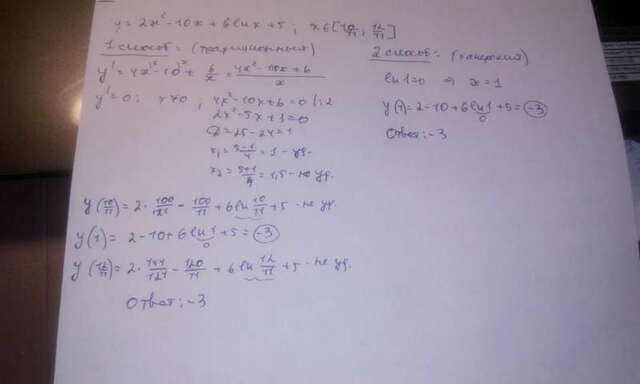 y = 2x² - 10x + 6lnx + 5 ; x∈[10/11 ; 12/11]
1 способ: (традиционный)
y' = 4x² - 10x + 6/x = 4x² - 10x + 6 / x
y' = 0 ; x≠0 ; 4x² - 10x + 6 = 0 |:2
2x² - 5x + 3 = 0
D = 25 - 24 = 1
x₁ = 5-1/4 = 1 - уд.
x₂ = 5+1/4 = 1,5 - не уд.
y(10/11) = 2 · 100/121 - 100/11 + 6ln 10/11 + 5 - не уд.
y(1) = 2 - 10 + 6 ln1 + 5 = -3
0
y(12/11) = 2 · 144/121 - 120/11 + 6 ln 12/11 + 5 - не уд.
Ответ: -3
2 способ:
ln1=0 ⇒ x=1
y(1) = 2 - 10 + 6 ln1 + 5 = -3
0
Ответ: -3